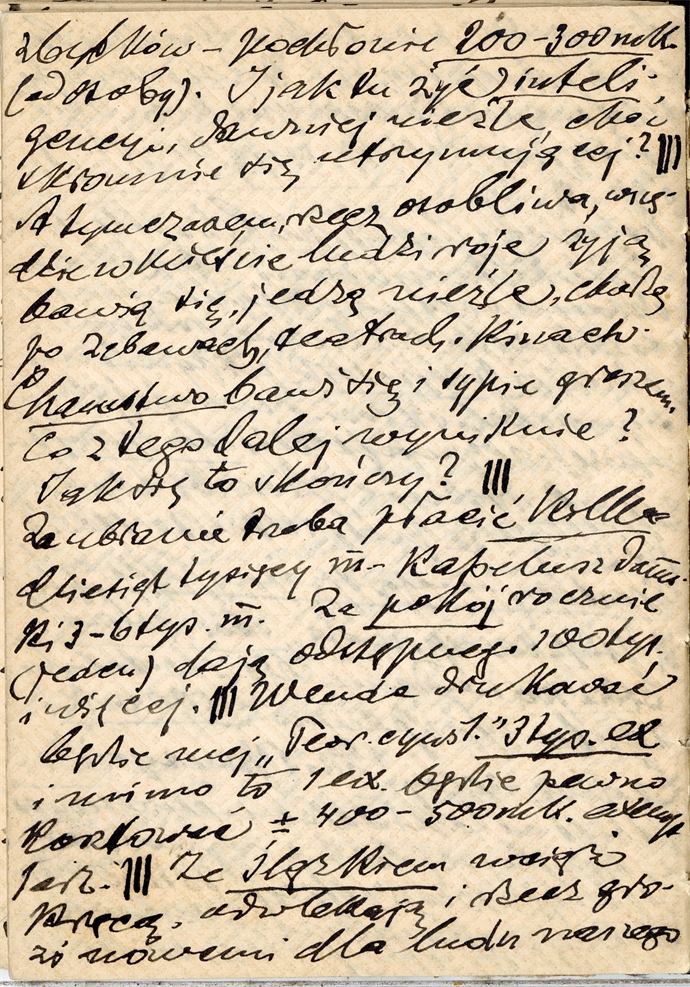 zbytków – podobnie 200–300 mk.
(od osoby). I jak tu żyć inteli-
gencyi, dawniej nieźle, choć
skromnie się utrzymującej? |||
A tymczasem, rzecz osobliwa, wszę-
dzie w mieście ludzi roje żyją
bawią się, jedzą nieźle, chodzą
po zabawach, teatrach, kinach.
Chamstwo bawi się i sypie groszem.
Co z tego dalej wyniknie?
Jak się to skończy? |||
Za ubranie trzeba płacić kilka-
dziesiąt tysięcy m– Kapelusz dams-
ki 3–6 tys. m. Za pokój rocznie
(jeden) dają odstępnego 100 tys.
i więcej. ||| Wende drukować
będzie mej „Teor. cywil." 3 tys. ex
i mimo to 1 ex. będzie pewno
kosztować ± 400–500 mk. exemp
larz. ||| Ze Śląskiem wciąż
kręcą, odwlekają i rzecz gro-
zi nowemi dla ludu naszego